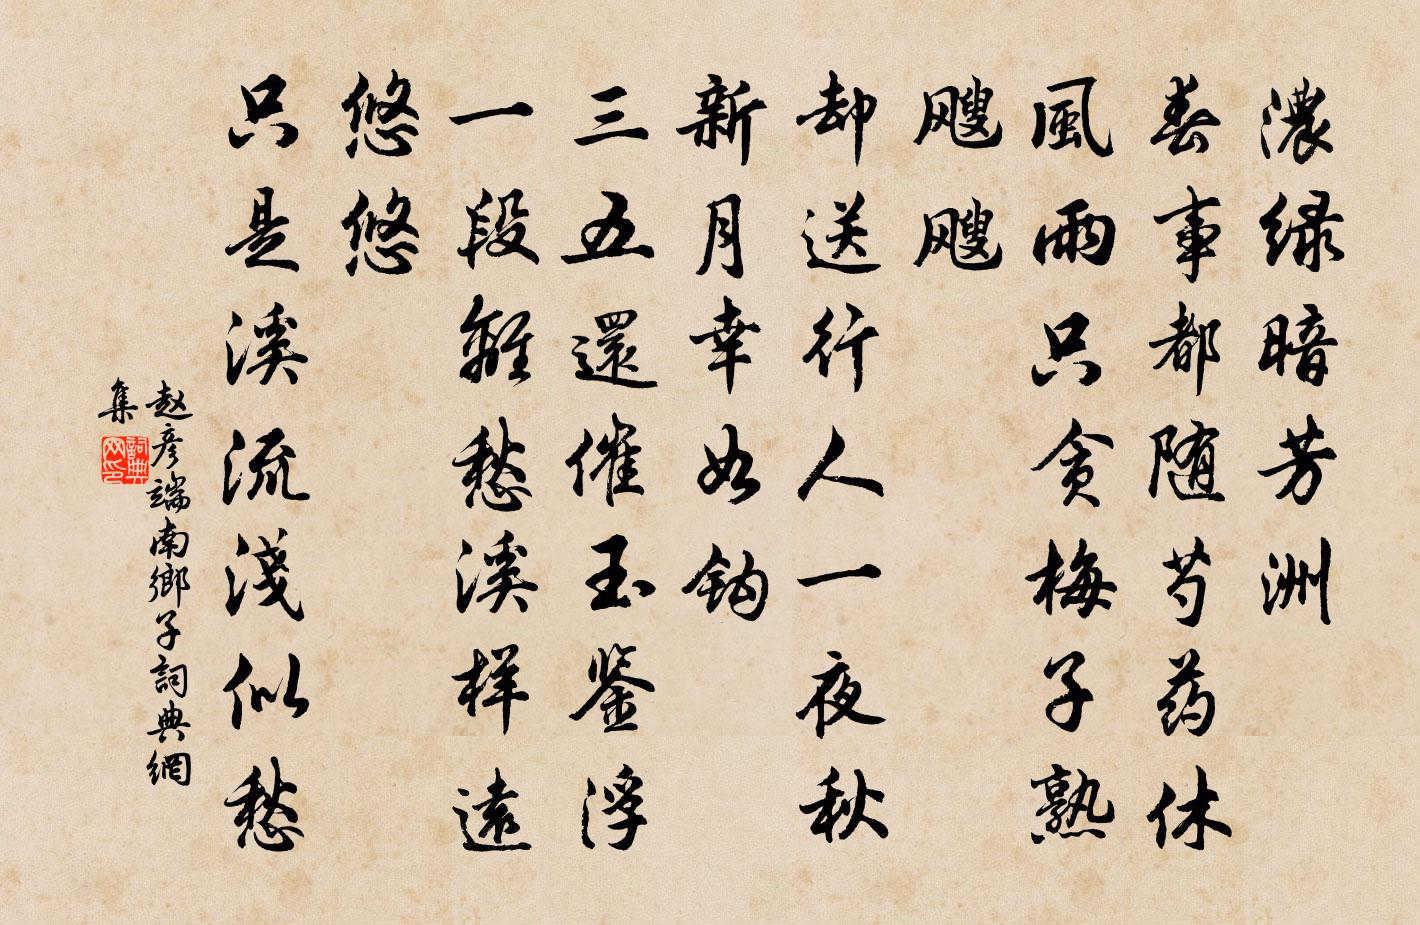 濃緑暗芳洲
春事都随芍药休
風雨只贪梅子熟
飕飕
却送行人一夜秋
新月幸如钩
三五還催玉鉴浮
一段離愁溪样遠
悠悠
只是溪流淺似愁
赵彦端南鄉子詞典網
集
詞典网印